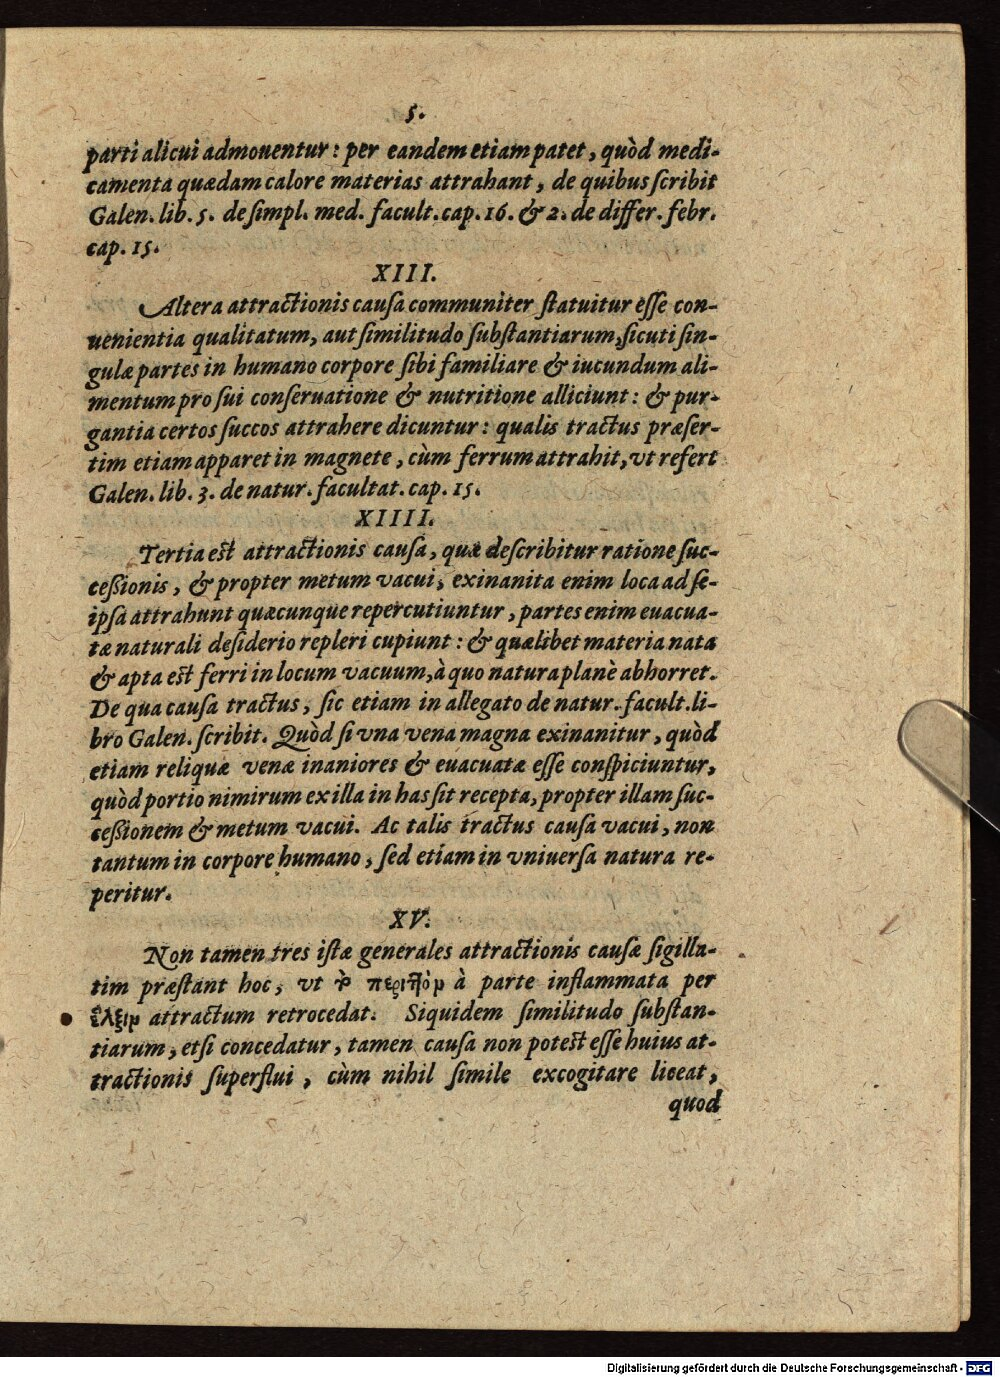 5.
parti alicui admouentur: per eandem etiam patet, quòd medi-
camenta quædam calore materias attrahant, de quibus ſcribit
Galen. lib. 5. de ſimpl. med. facult. cap. 16. & 2. de differ. febr.
cap. 15.
XIII.
Altera attractionis cauſa communiter ſtatuitur eſſe con-
uenientia qualitatum, aut ſimilitudo ſubſtantiarum, ſicuti ſin-
gulæ partes in humano corpore ſibi familiare & iucundum ali-
mentum pro ſui conſeruatione & nutritione alliciunt: & pur-
gantia certos ſuccos attrahere dicuntur: qualis tractus præſer-
tim etiam apparet in magnete, cùm ferrum attrahit, vt refert
Galen. lib. 3. de natur. facultat. cap. 15.
XIIII.
Tertia est attractionis cauſa, quæ deſcribitur ratione ſuc-
ceßionis, & propter metum vacui, exinanita enim loca ad ſe-
ipſa attrahunt quæcunque repercutiuntur, partes enim euacua-
tæ naturali deſiderio repleri cupiunt: & quælibet materia nata
& apta est ferri in locum vacuum, à quo natura planè abhorret.
De qua cauſa tractus, ſic etiam in allegato de natur. facult. li-
bro Galen. ſcribit. Quòd ſi vna vena magna exinanitur, quòd
etiam reliquæ venæ inaniores & euacuatæ eſſe conſpiciuntur,
quòd portio nimirum ex illa in has ſit recepta, propter illam ſuc-
ceßionem & metum vacui. Ac talis tractus cauſa vacui, non
tantum in corpore humano, ſed etiam in vniuerſa natura re-
peritur.
XV.
Non tamen tres iſtæ generales attractionis cauſæ ſigilla-
tim præſtant hoc, vt à parte inflammata per
ἕλξιν attractum retrocedat. Siquidem ſimilitudo ſubſtan-
tiarum, etſi concedatur, tamen cauſa non potest eſſe huius at-
tractionis ſuperflui, cùm nihil ſimile excogitare liceat,
quod
Digitalisierung gefördert durch die Deutsche Forschungsgemeinschaft - DFG